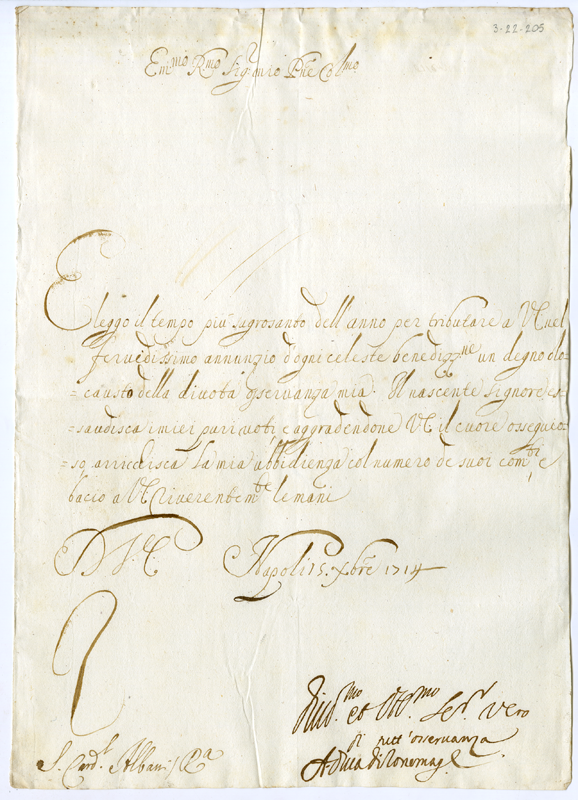 3.22.205
Em.mo Rmo Sig.r mio Pne Col.mo
Eleggo il tempo più sagrosanto dell anno per tributare a VE nel
fervedissimo annunzio d'ogni celeste benediz.ne un degno olo-
=causto della divota osservanza mia. Il nascente signore es-
=saudisca i miei puri voti e aggradendone VE il cuore ossequio-
=so arricchisca la mia ubbidienza col numero de suoi com.di e
bacio a VE riverentem.te le mani
D V.E. Napoli 15. Xbre 1714
Div.mo et Obb.mo Ser.r vero
di tutt'osservanza
S. Card.l Albani